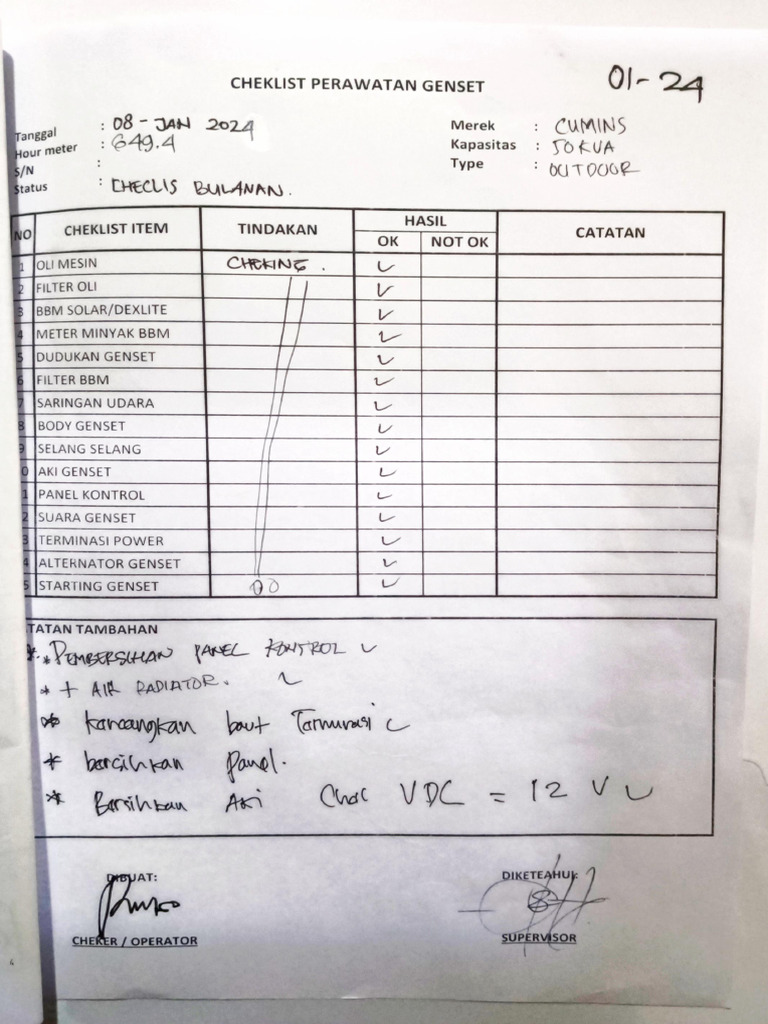 CHEKLIST PERAWATAN GENSET
01-24
Tanggal : 08 - JAN 2024
Hour meter : 649.4
S/N :
Status : CHECLIS BULANAN.
Merek : CUMINS
Kapasitas : 50 KVA
Type : OUTDOOR
NO CHEKLIST ITEM TINDAKAN HASIL CATATAN
OK NOT OK
1 OLI MESIN CHEKING. ✓
2 FILTER OLI ✓
3 BBM SOLAR/DEXLITE ✓
4 METER MINYAK BBM ✓
5 DUDUKAN GENSET ✓
6 FILTER BBM ✓
7 SARINGAN UDARA ✓
8 BODY GENSET ✓
9 SELANG SELANG ✓
0 AKI GENSET ✓
1 PANEL KONTROL ✓
2 SUARA GENSET ✓
3 TERMINASI POWER ✓
4 ALTERNATOR GENSET ✓
5 STARTING GENSET ✓
TATAN TAMBAHAN
* PEMBERSIHAN PANEL KONTROL ✓
* + AIR RADIATOR. ✓
* kancangkan baut Tarminasi ✓
* barsihkan panel.
* Barsihkan Aki Chac VDC = 12 V ✓
DIBUAT:
CHEKER / OPERATOR
DIKETEAHUI:
SUPERVISOR